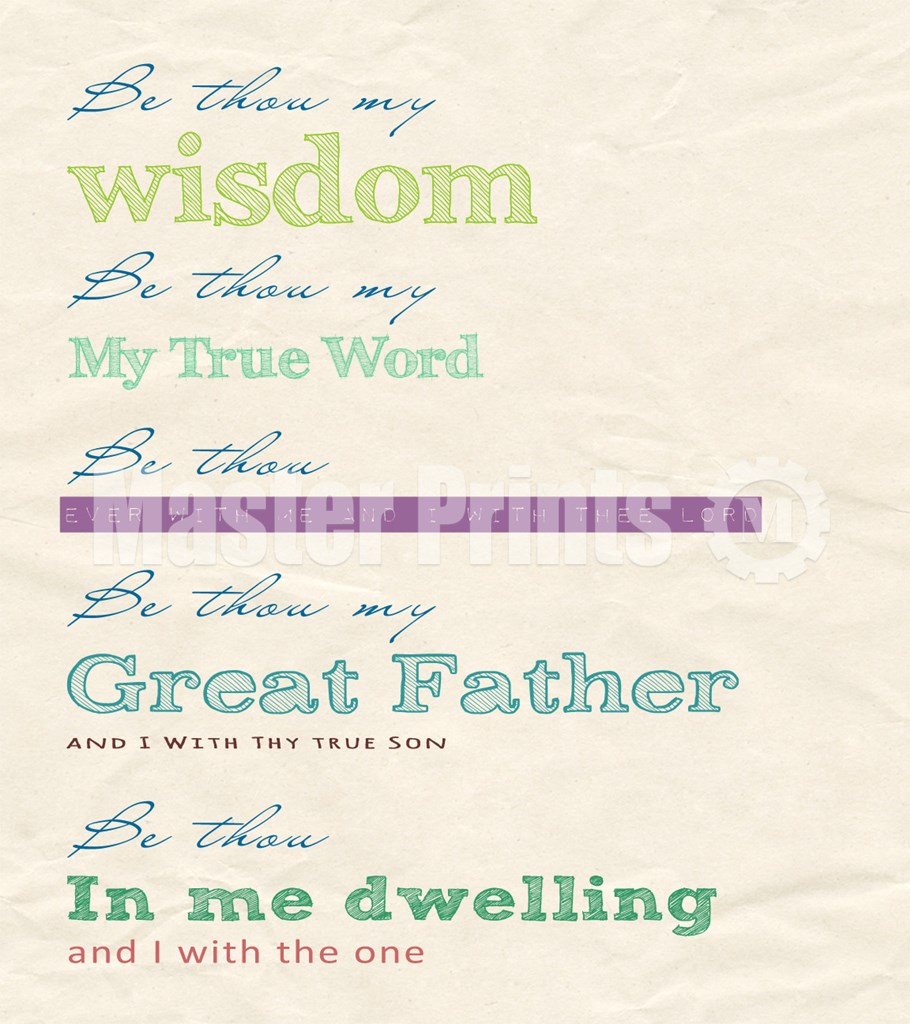 Be thou my
wisdom
Be thou my
My True Word
Be thou
EVER WITH ME AND I WITH THEE LORD
Master Prints M
Be thou my
Great Father
AND I WITH THY TRUE SON
Be thou
In me dwelling
and I with the one